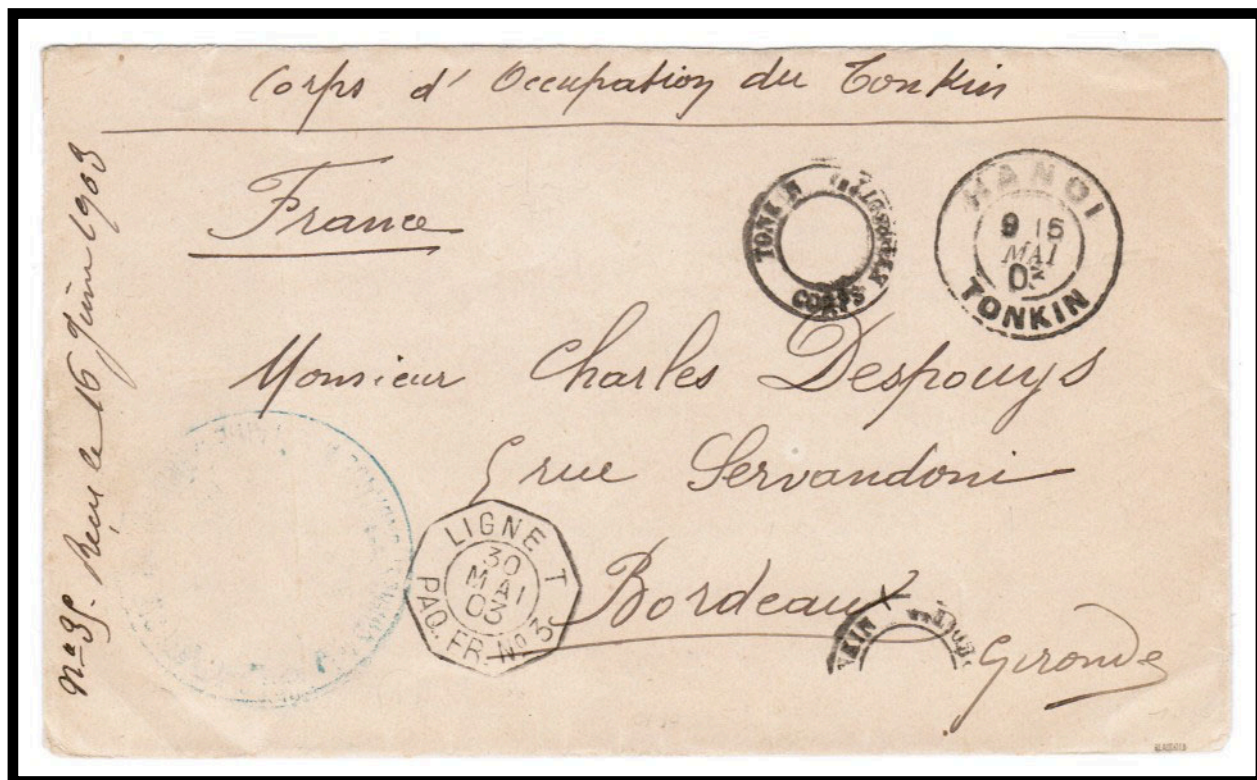 Corps d'Occupation du Tonkin
France
TONKIN
CORPS
HANOI
9 15
MAI
03
TONKIN
Monsieur Charles Despouys
5 rue Servandoni
Bordeaux
Gironde
LIGNE T
30
MAI
03
PAQ. FR. Nº 3
KIN
nº 39. Reçu le 16 Juin 1903